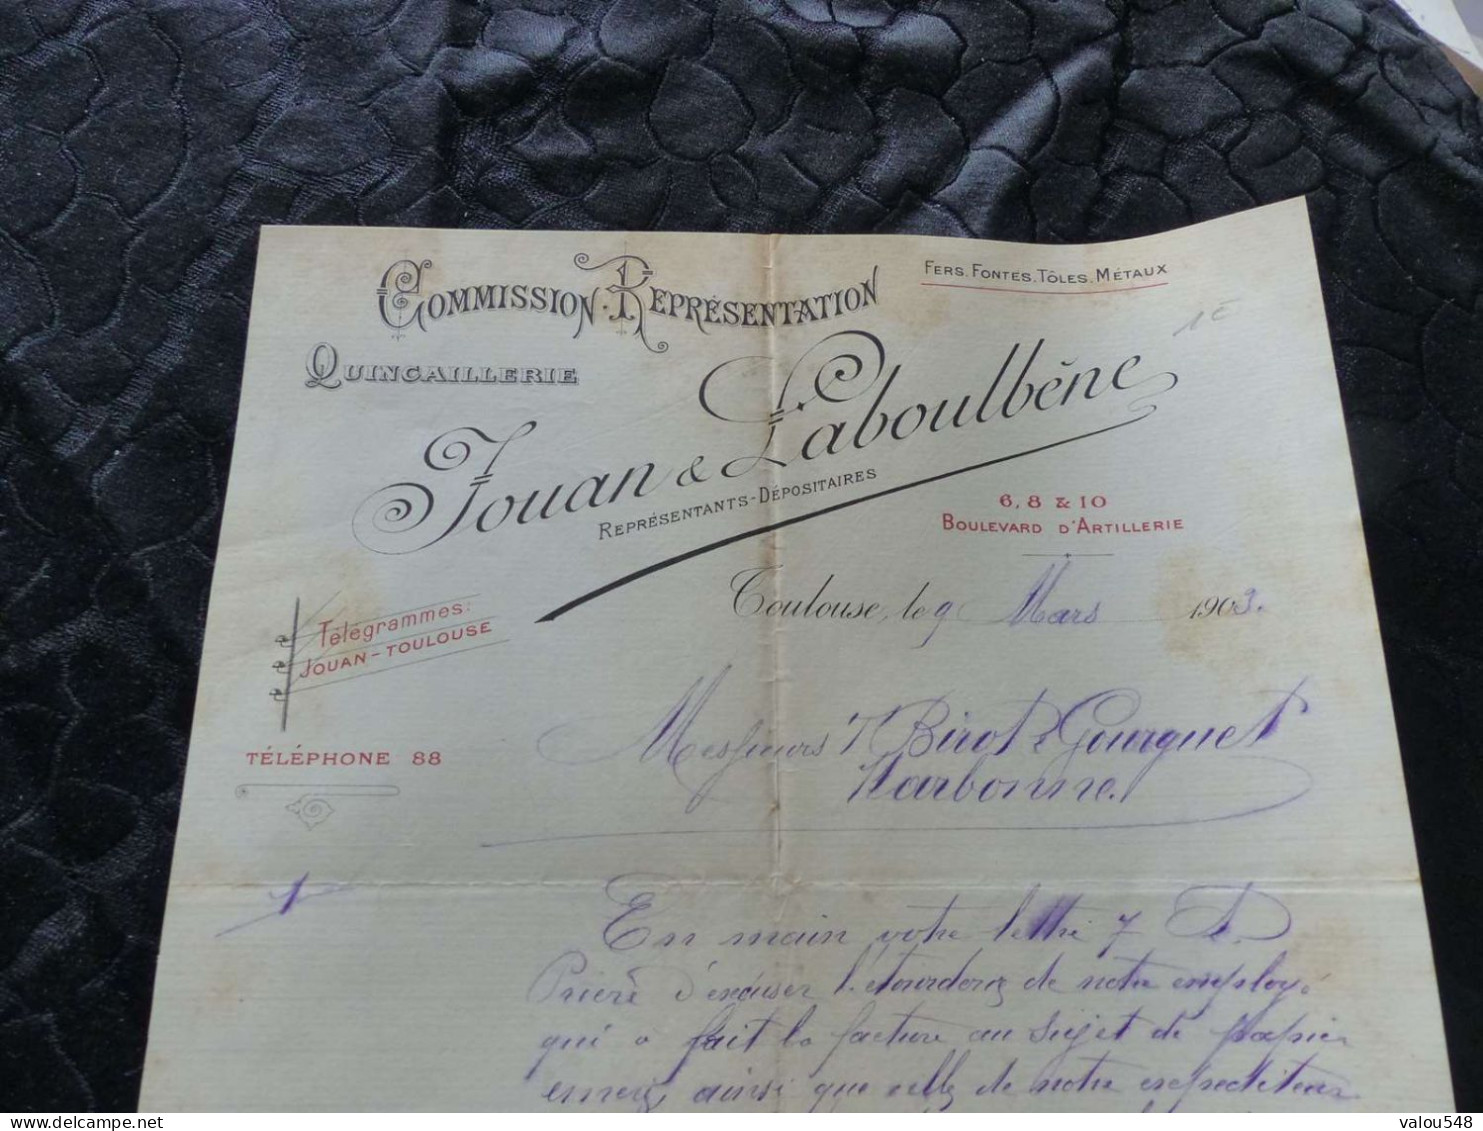 Commission. Représentation
Fers. Fontes. Tôles. Métaux
1 €
Quincaillerie
Jouan & Laboulbène
Représentants-Dépositaires
6, 8 & 10
Boulevard d'Artillerie
Toulouse, le 9 Mars 1903.
Télégrammes:
Jouan-Toulouse
Téléphone 88
Messieurs Birot & Gourguet
Narbonne.
En main votre lettre 7 ct.
Prière d'excuser l'étourderie de notre employé
qui a fait la facture au sujet de papier
émeri, ainsi que celle de notre expéditeur
valou548